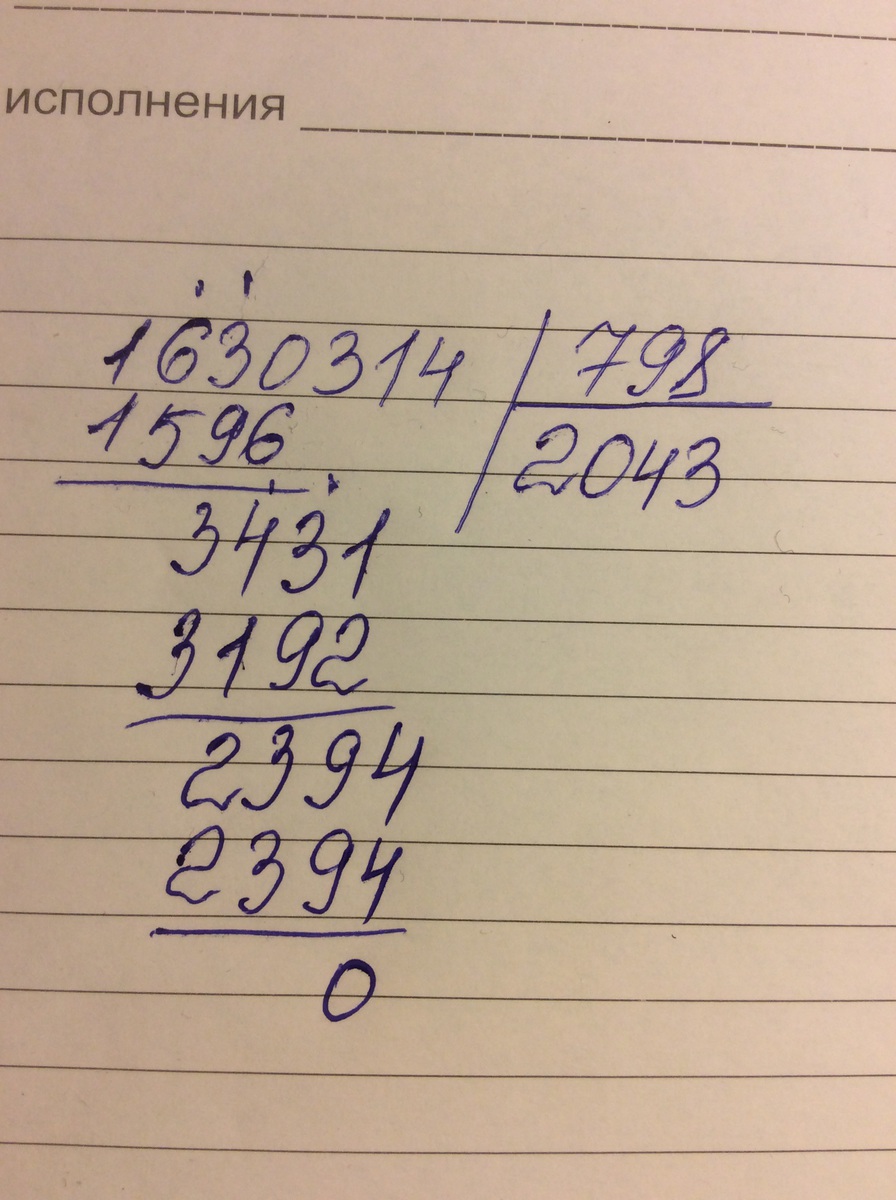 исполнения
1630314 798
1596 2043
3431
3192
2394
2394
0